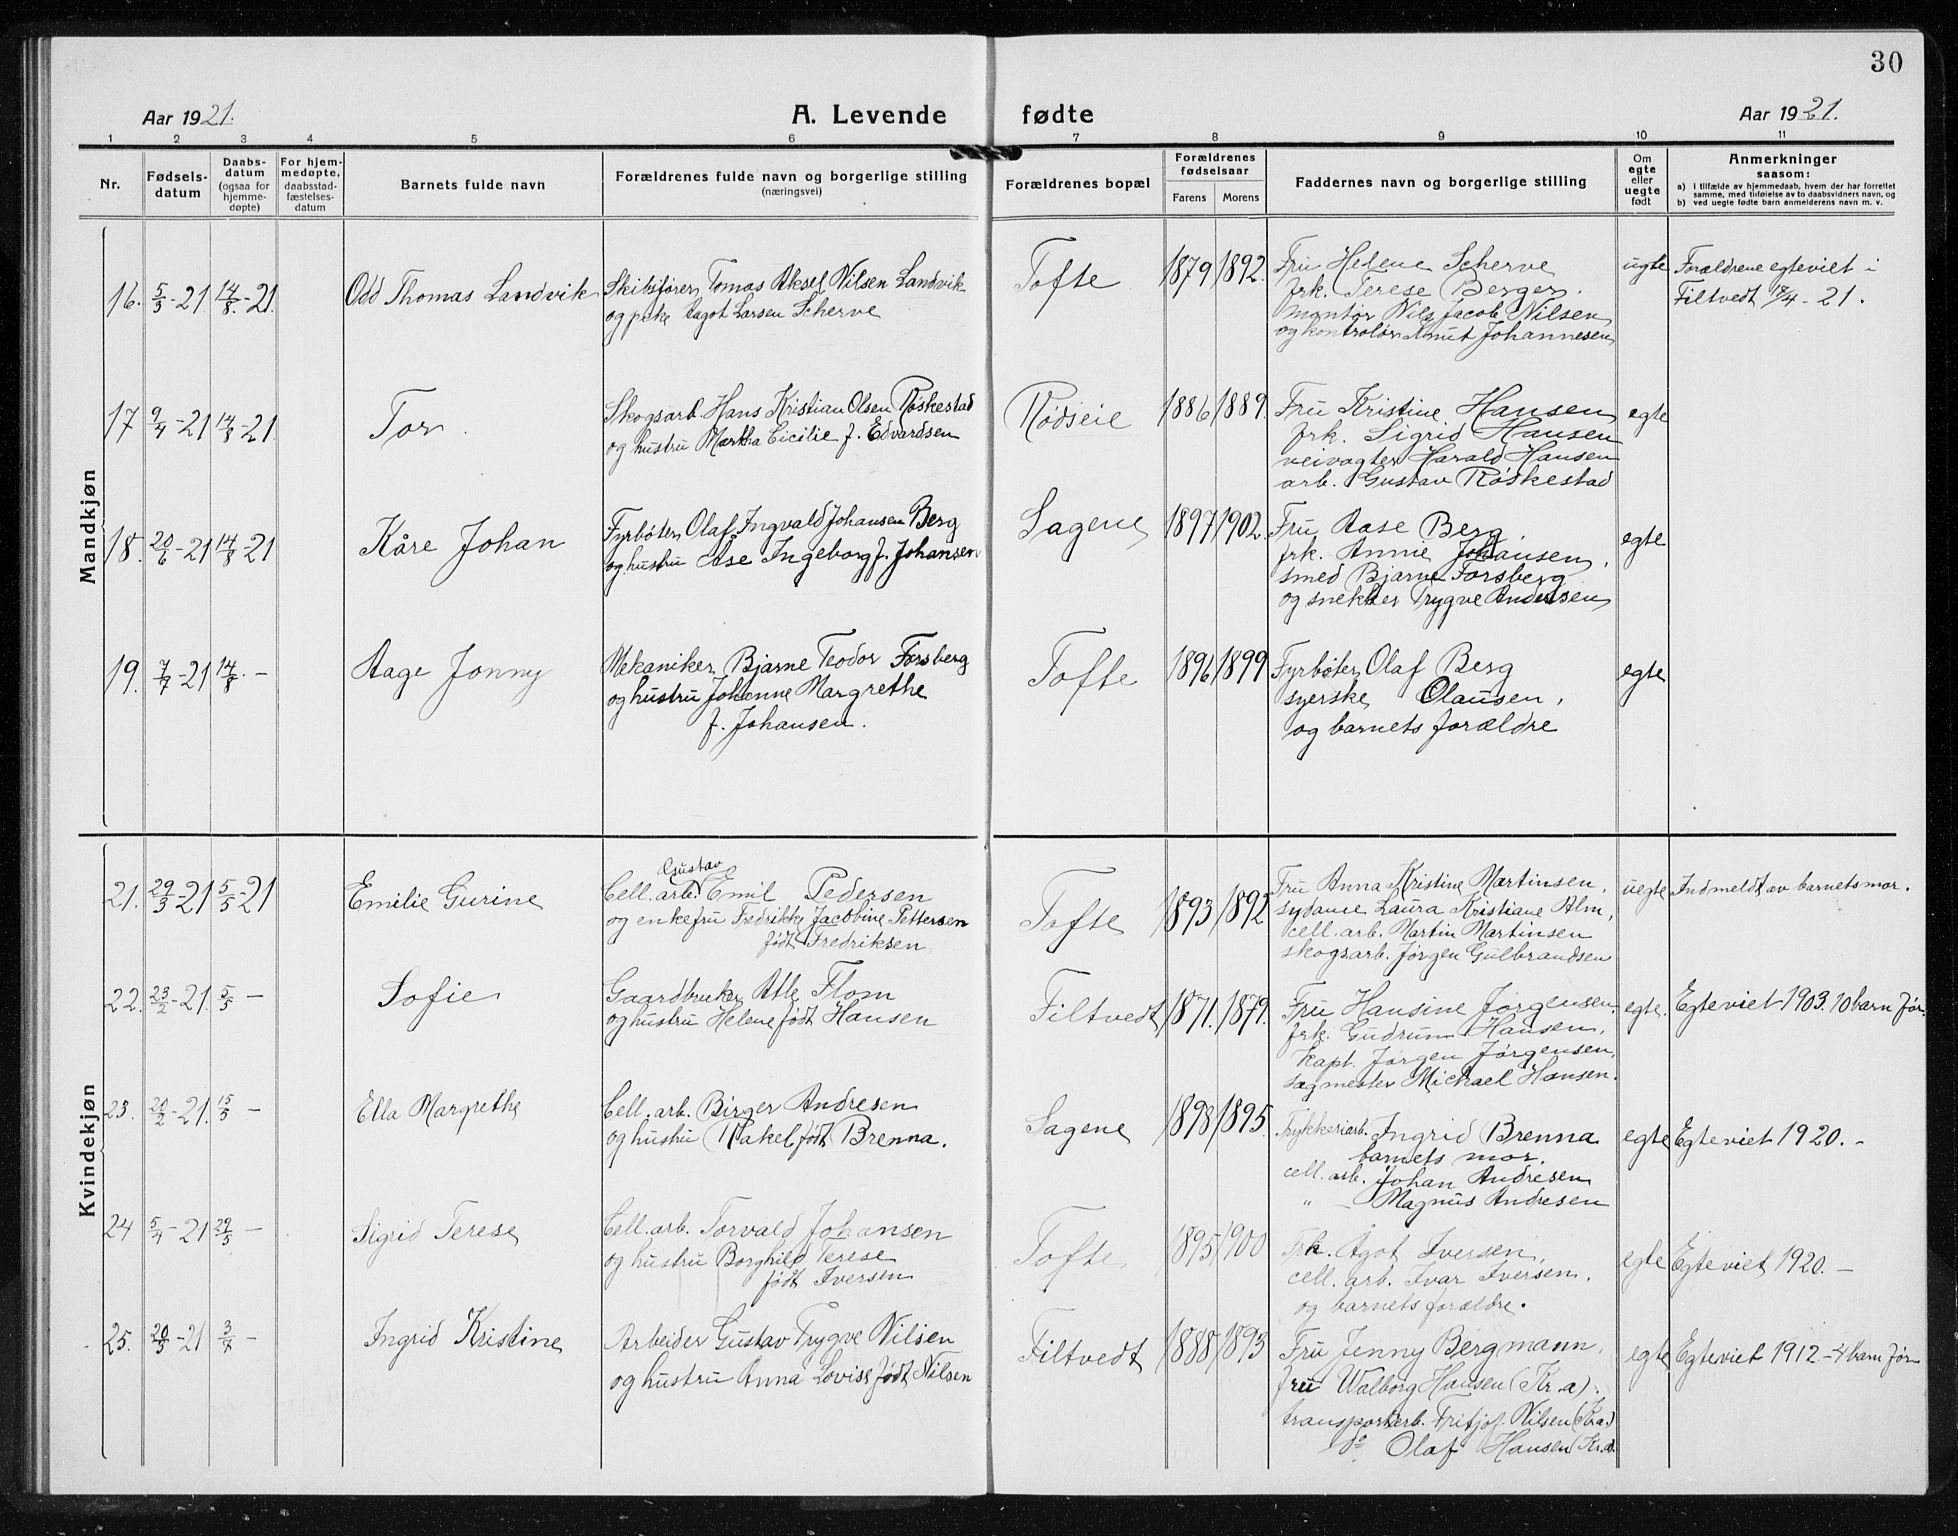 30
Aar 1921.
A. Levende fødte
Aar 1921.
1 2 3 4 5 6 7 8 9 10 11
Nr.
Fødsels-
datum
Daabs-
datum
(ogsaa for
hjemme-
døpte)
For hjem-
medøpte,
daabsstad-
fæstelses-
datum
Barnets fulde navn
Forældrenes fulde navn og borgerlige stilling
(næringsvei)
Forældrenes bopæl
Forældrenes
fødselsaar
Farens Morens
Faddernes navn og borgerlige stilling
Om
egte
eller
uegte
født
Anmerkninger
saasom:
a) i tilfælde av hjemmedaab, hvem der har forrettet
samme, med tilføielse av to daabsvidners navn, og
b) ved uegte fødte barn anmelderens navn m. v.
Mandkjøn
16. 5/3-21 14/8-21. Odd Thomas Landvik
Skibsfører Tomas Aksel Nilsen Landvik
og pike Aagot Larsen Scherve
Tofte 1879 1892.
Fru Helene Scherve
frk. Terese Berger.
montør Nils Jacob Nilsen
og kontrolør Knut Johannesen
ugte
Forældrene egteviet i
Filtvedt /4-21.
17 9/4-21 14/8-21 Tor.
Skogsarb. Hans Kristian Olsen Røskestad
og hustru Martha Cicilie f. Edvardsen
Rødseie 1886 1889.
Fru Kristine Hansen
frk. Sigrid Hansen
veivogter Harald Hansen
arb. Gustav Røskestad
egte
18. 20/6-21 14/8-21 Kåre Johan
Fyrbøter Olaf Ingvald Johansen Berg
og hustru Åse Ingeborg f. Johansen
Sagene 1897 1902.
Fru Aase Berg
frk. Annie Johansen,
smed Bjarne Forsberg
og snekker Trygve Andersen
egte
19. 7/7-21 14/8- Aage Jonny
Mekaniker Bjarne Teodor Forsberg
og hustru Johanne Margrethe
f. Johansen.
Tofte 1896 1899
Fyrbøter Olaf Berg
syerske Olausen,
og barnets forældre
egte
Kvindekjøn
21. 29/3-21 5/5-21 Emilie Gurine
Gustav
Cell. arb. Emil Pedersen
og enkefru Fredrikke Jacobine Pettersen
født Fredriksen
Tofte 1893 1892
Fru Anna Kristine Martinsen.
sydame Laura Kristiane Alm,
cell. arb. Martin Martinsen
skogsarb. Jørgen Gulbrandsen
uegte Indmeldt av barnets mor.
22. 23/2-21. 5/5- Sofie
Gaardbruker Atle Flom
og hustru Helene født Hansen
Filtvedt 1871. 1879.
Fru Hansine Jørgensen.
frk. Gudrun Hansen,
Kapt. Jørgen Jørgensen,
sagmester Michael Hansen.
egte. Egteviet 1903. 10 barn før.
23. 20/2-21. 15/5- Ella Margrethe
Cell. arb. Birger Andresen
og hustru Rakel født Brenna.
Sagene 1898 1895.
Trykkeriarb. Ingrid Brenna
barnets mor.
cell. arb. Johan Andresen
" - Magnus Andresen
egte Egteviet 1920. -
24 5/4-21 29/5- Sigrid Terese
Cell. arb. Torvald Johansen
og hustru Borghild Terese
født Iversen
Tofte 1895 1900
Frk. Agot Iversen,
cell. arb. Ivar Iversen.
og barnets forældre.
egte Egteviet 1920. -
25. 20/5-21 3/7- Ingrid Kristine
Arbeider Gustav Trygve Nilsen
og hustru Anna Lovise født Nilsen
Filtvedt 1888 1893
Fru Jenny Bergmann,
fru Walborg Hansen (Kr.a).
transportarb. Fritjof Nilsen (Kr.a.)
do Olaf Hansen (Kr.a).
egte Egteviet 1912 - 4 barn før